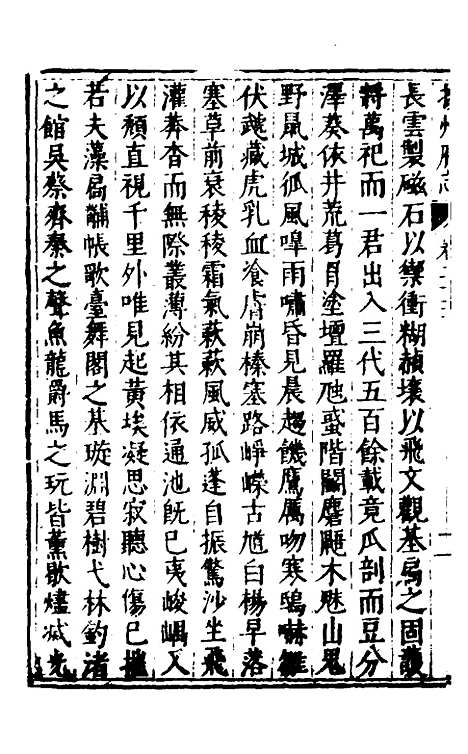 長雲製磁石以禦衝糊赬壤以飛文觀基扃之固護
將萬祀而一君出入三代五百餘載竟瓜剖而豆分
澤葵依井荒葛罥塗壇羅虺蜮階鬭麏鼯木魅山鬼
野鼠城狐風嘷雨嘯昏見晨趨饑鷹厲吻寒鴟嚇雛
伏虣藏虎乳血飡膚崩榛塞路崢嶸古馗白楊早落
塞草前衰稜稜霜氣蔌蔌風威孤蓬自振驚沙坐飛
灌莽杳而無際叢薄紛其相依通池旣已夷峻嵎又
以頹直視千里外唯見起黃埃凝思寂聽心傷已摧
若夫藻扃黼帳歌臺舞閣之基璇淵碧樹弋林釣渚
之館吳蔡齊秦之聲魚龍爵馬之玩皆薰歇燼滅光